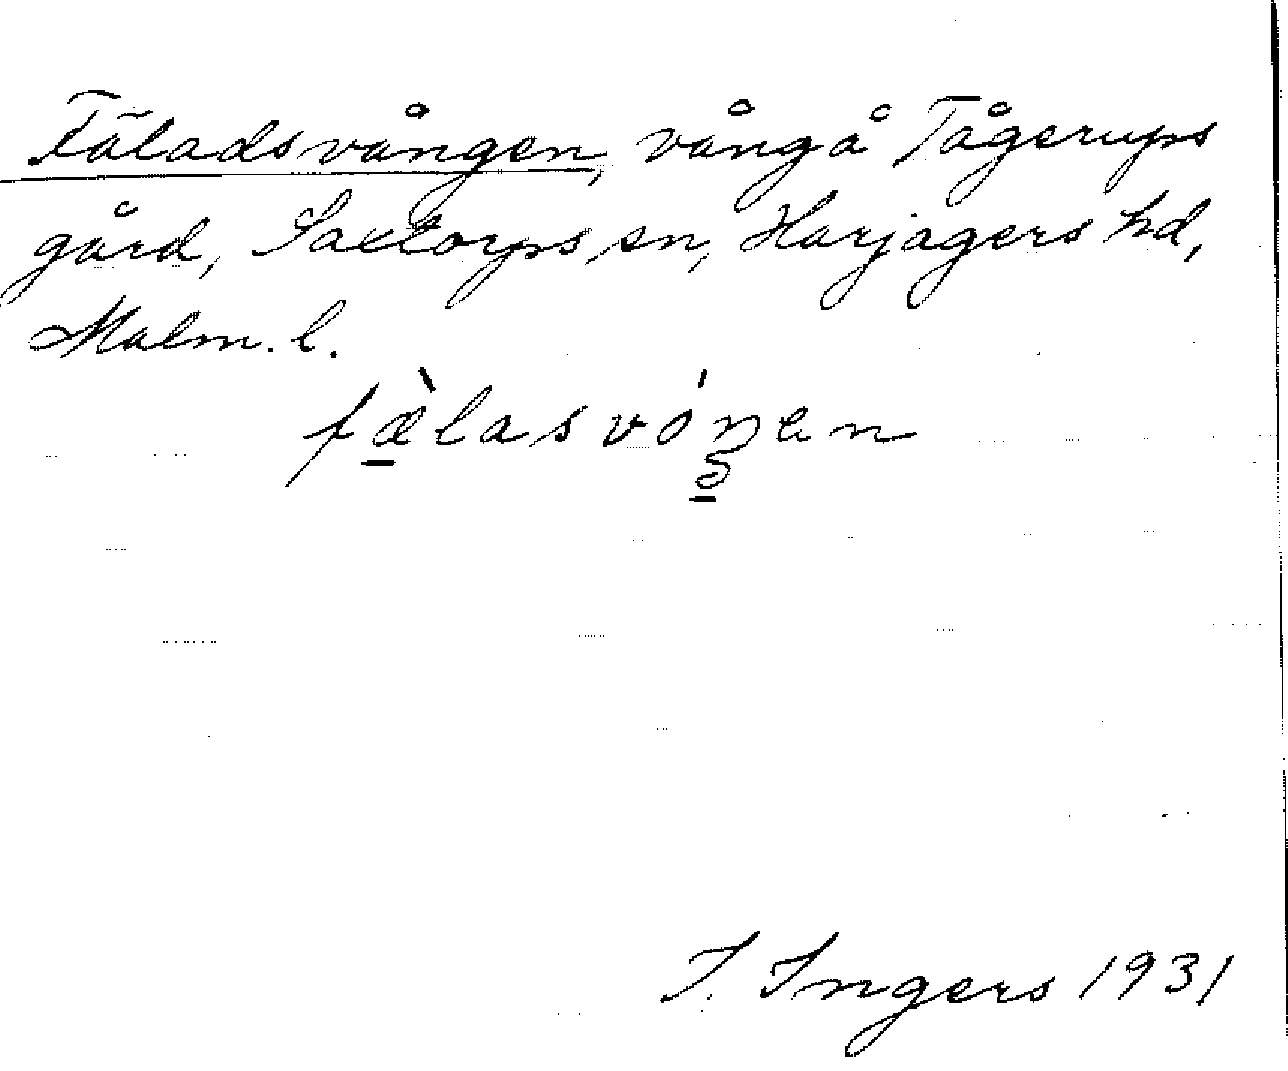 Fäladsvången, vång å Tågerups
gård, Saxtorps sn, Harjagers hd,
Malm. l.
fæ̀lasvóŋen
I. Ingers 1931